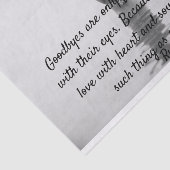 Goodbyes are only
with their eyes. Because
love with heart and sou
such thing as
R